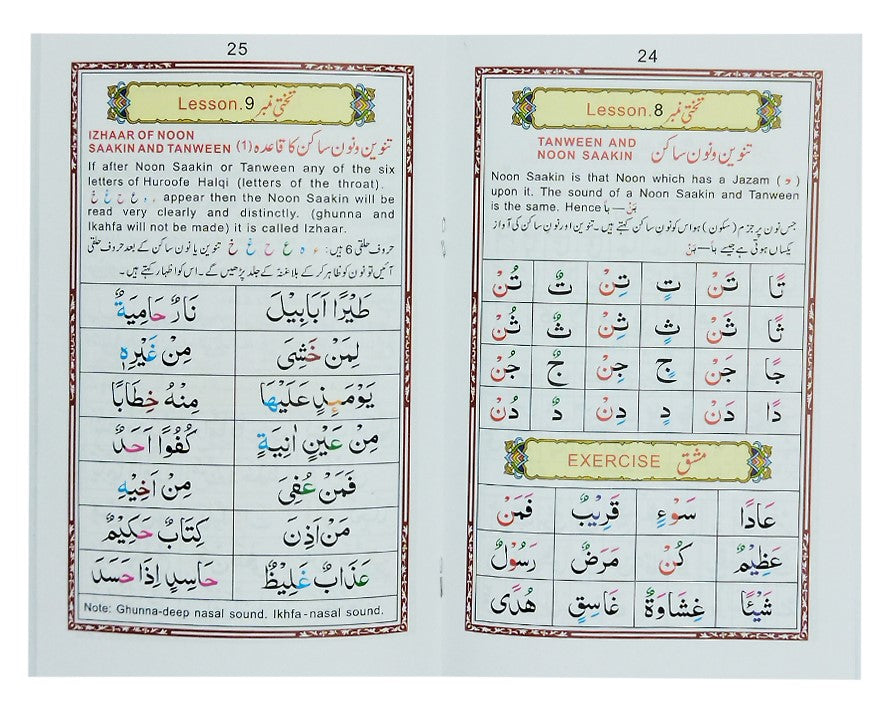 24
Lesson.8 تختی نمبر
TANWEEN AND
NOON SAAKIN تنوین و نون ساکن
Noon Saakin is that Noon which has a Jazam ( ْ )
upon it. The sound of a Noon Saakin and Tanween
is the same. Hence بًا — بَنْ
جس نون پر جزم (سکون) ہو اس کو نون ساکن کہتے ہیں۔ تنوین اور نون ساکن کی آواز
یکساں ہوتی ہے جیسے بًا — بَنْ
تًا تَنْ تٍ تِنْ تٌ تُنْ
ثًا ثَنْ ثٍ ثِنْ ثٌ ثُنْ
جًا جَنْ جٍ جِنْ جٌ جُنْ
دًا دَنْ دٍ دِنْ دٌ دُنْ
EXERCISE مشق
عَادًا سَوْءٍ قَرِيْبٌ فَمَنْ
عَظِيْمٌ كُنْ مَرَضٌ رَسُوْلٌ
شَيْئًا غِشَاوَةٌ غَاسِقٍ هُدًى
25
Lesson.9 تختی نمبر
IZHAAR OF NOON
SAAKIN AND TANWEEN تنوین و نون ساکن کا قاعدہ (1)
If after Noon Saakin or Tanween any of the six
letters of Huroofe Halqi (letters of the throat).
ء ہ ع ح غ خ appear then the Noon Saakin will be
read very clearly and distinctly. (ghunna and
Ikahfa will not be made) it is called Izhaar.
حروف حلقی 6 ہیں: ء ہ ع ح غ خ تنوین یا نون ساکن کے بعد حروف حلقی
آئیں تو نون کو ظاہر کر کے بلا غنہ کے جلد پڑھیں گے۔ اس کو اظہار کہتے ہیں۔
طَيْرًا اَبَابِيْلَ نَارٌ حَامِيَةٌ
لِمَنْ خَشِىَ مِنْ غَيْرِهٖ
يَوْمَئِذٍ عَلَيْهَا مِنْهُ خِطَابًا
مِنْ عَيْنٍ اٰنِيَةٍ كُفُوًا اَحَدٌ
فَمَنْ عُفِىَ مِنْ اَخِيْهِ
مَنْ اَذِنَ كِتَابٌ حَكِيْمٌ
عَذَابٌ غَلِيْظٌ حَاسِدٍ اِذَا حَسَدَ
Note: Ghunna-deep nasal sound. Ikhfa-nasal sound.